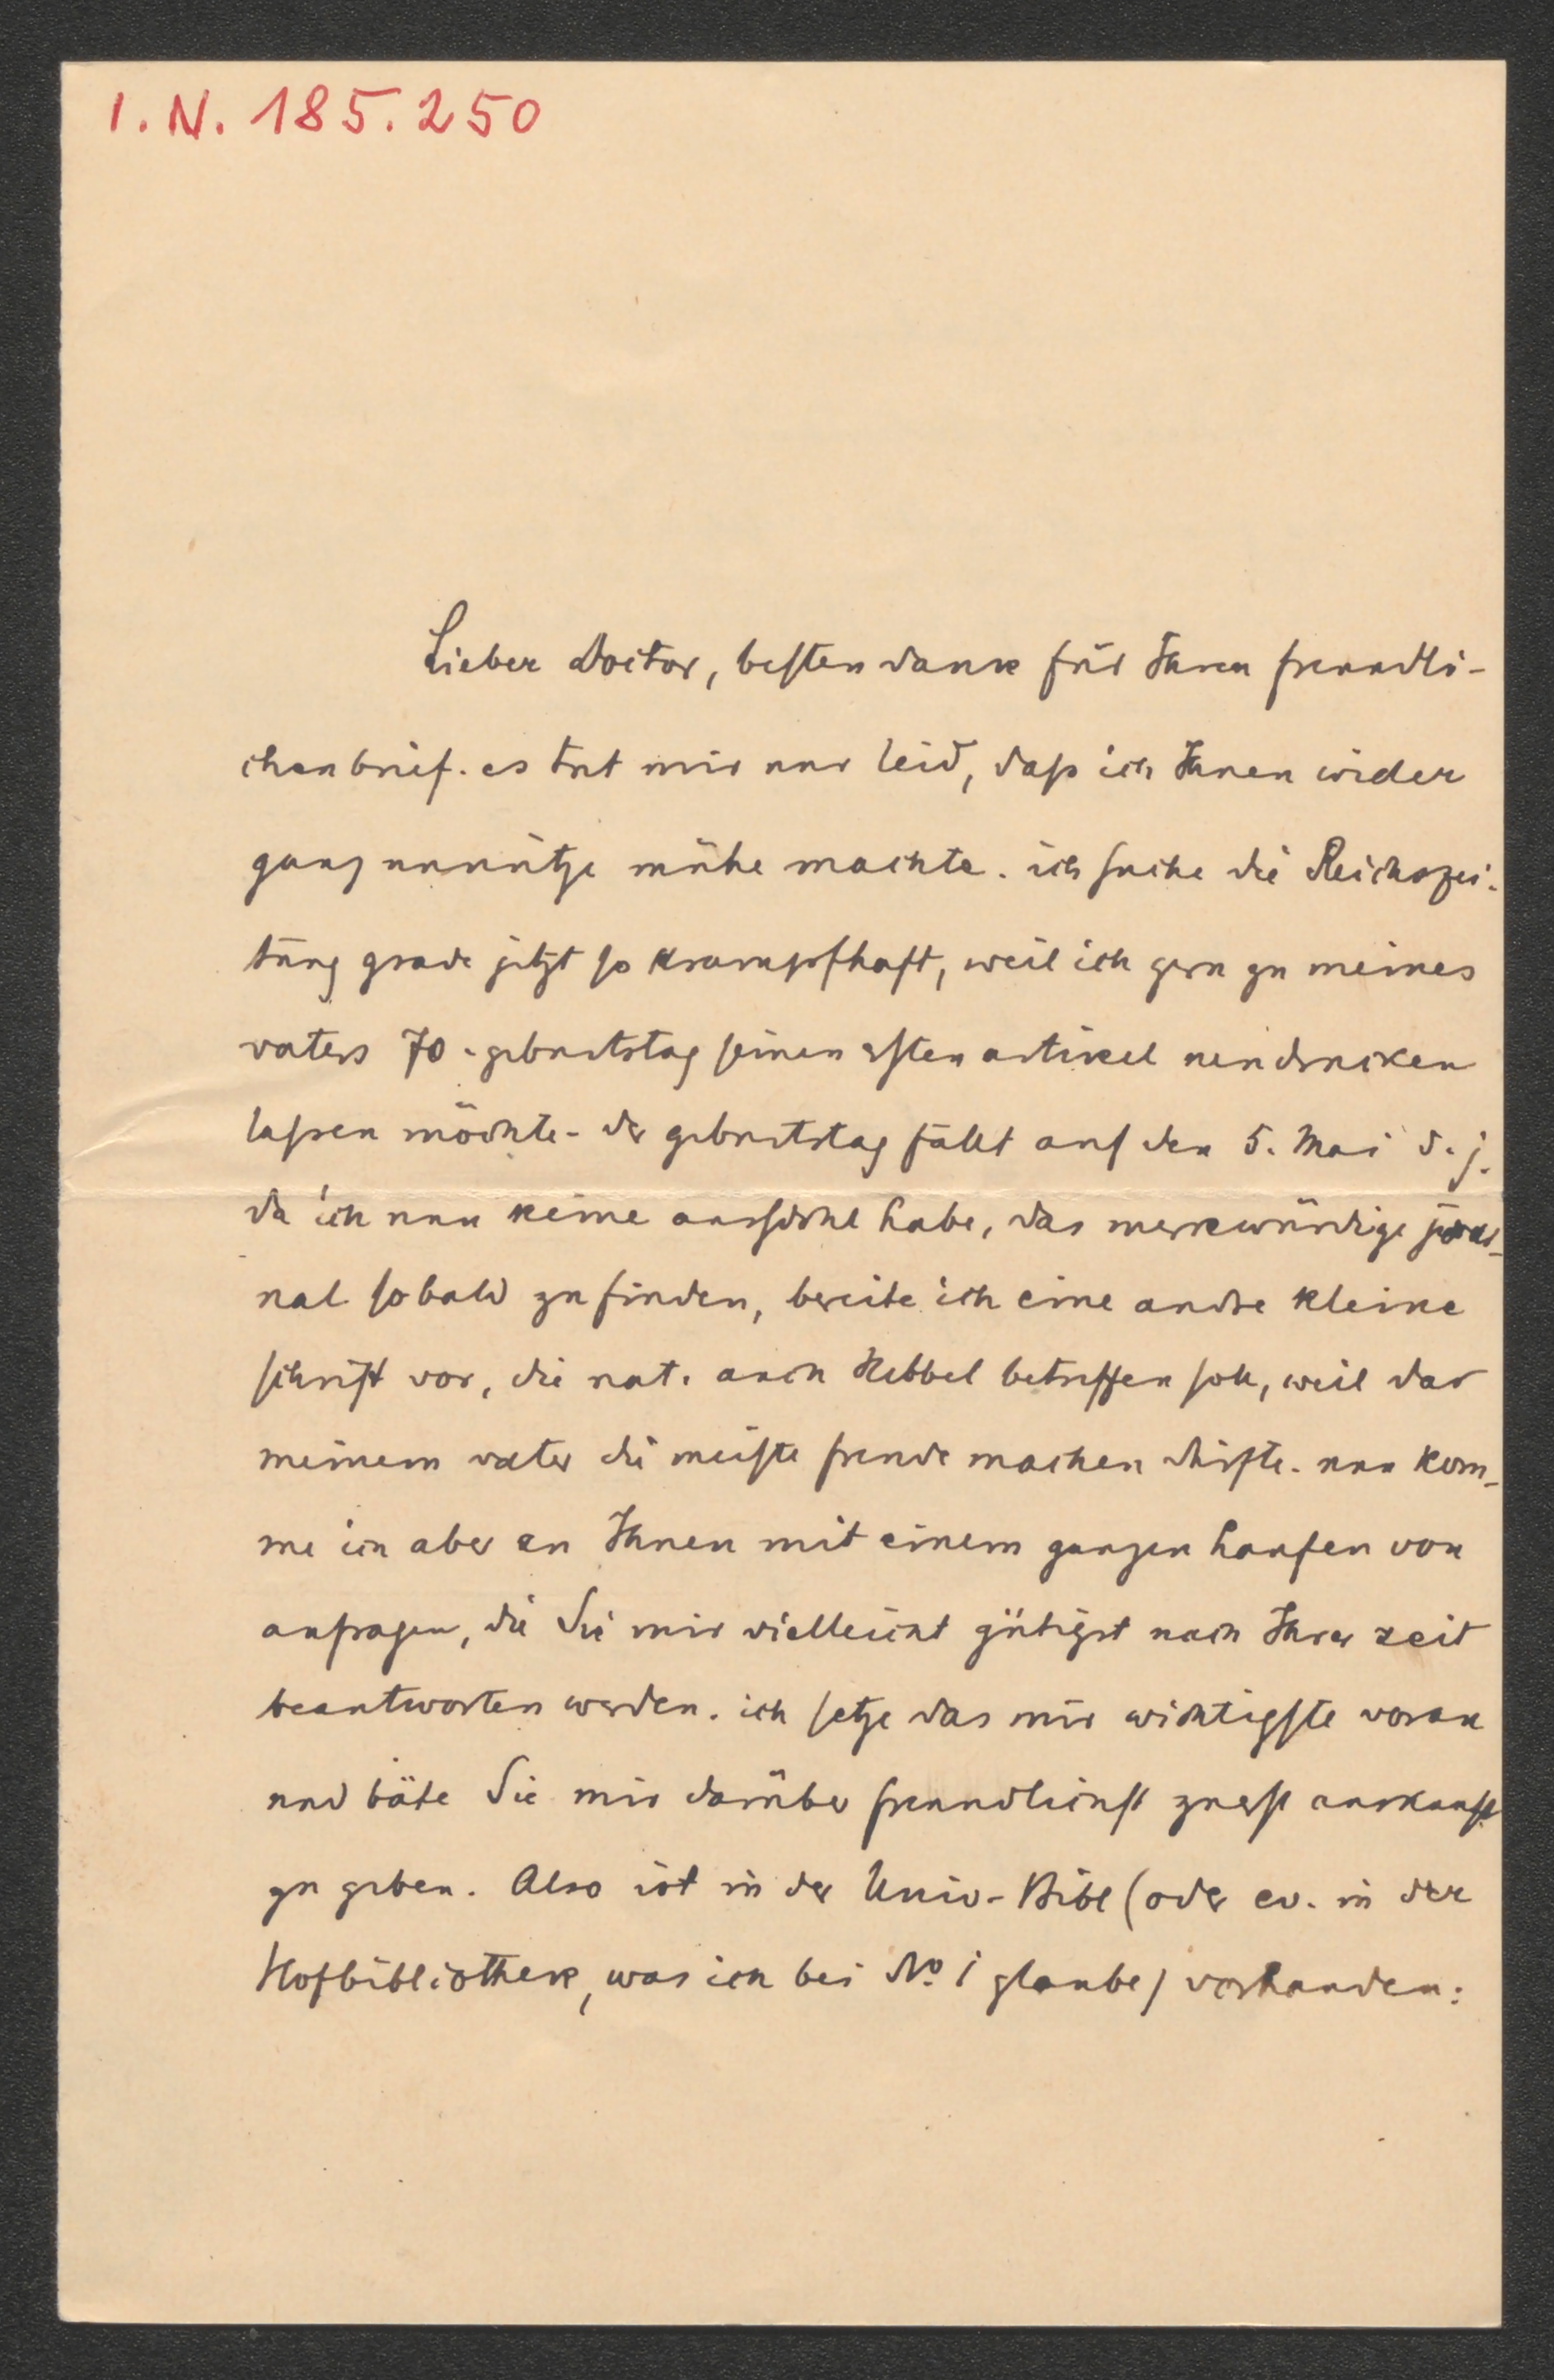 I.N. 185.250
Lieber Doctor, besten dank für Ihren freundli-
chen brief. es tut mir nur leid, dass ich Ihnen wider
ganz unnütze mühe machte. ich suche die Reichszei-
tung grade jetzt so krampfhaft, weil ich gern zu meines
vaters 70. geburtstag seinen ersten artikel neu drucken
lassen möchte - der geburtstag fällt auf den 5. Mai d. j.
da ich nun keine aussicht habe, das merkwürdige jour-
nal so bald zu finden, bereite ich eine andre kleine
schrift vor, die nat. auch Hebbel betreffen soll, weil das
meinem vater die meiste freude machen dürfte. nun kom-
me ich aber zu Ihnen mit einem ganzen haufen von
anfragen, die Sie mir vielleicht gütigst nach Ihrer zeit
beantworten werden. ich setze das mir wichtigste voran
und bäte Sie mir darüber freundlichst zuerst auskunft
zu geben. Also ist in der Univ-Bibl (oder ev. in der
Hofbibliothek, was ich bei No. 1 glaube) vorhanden: